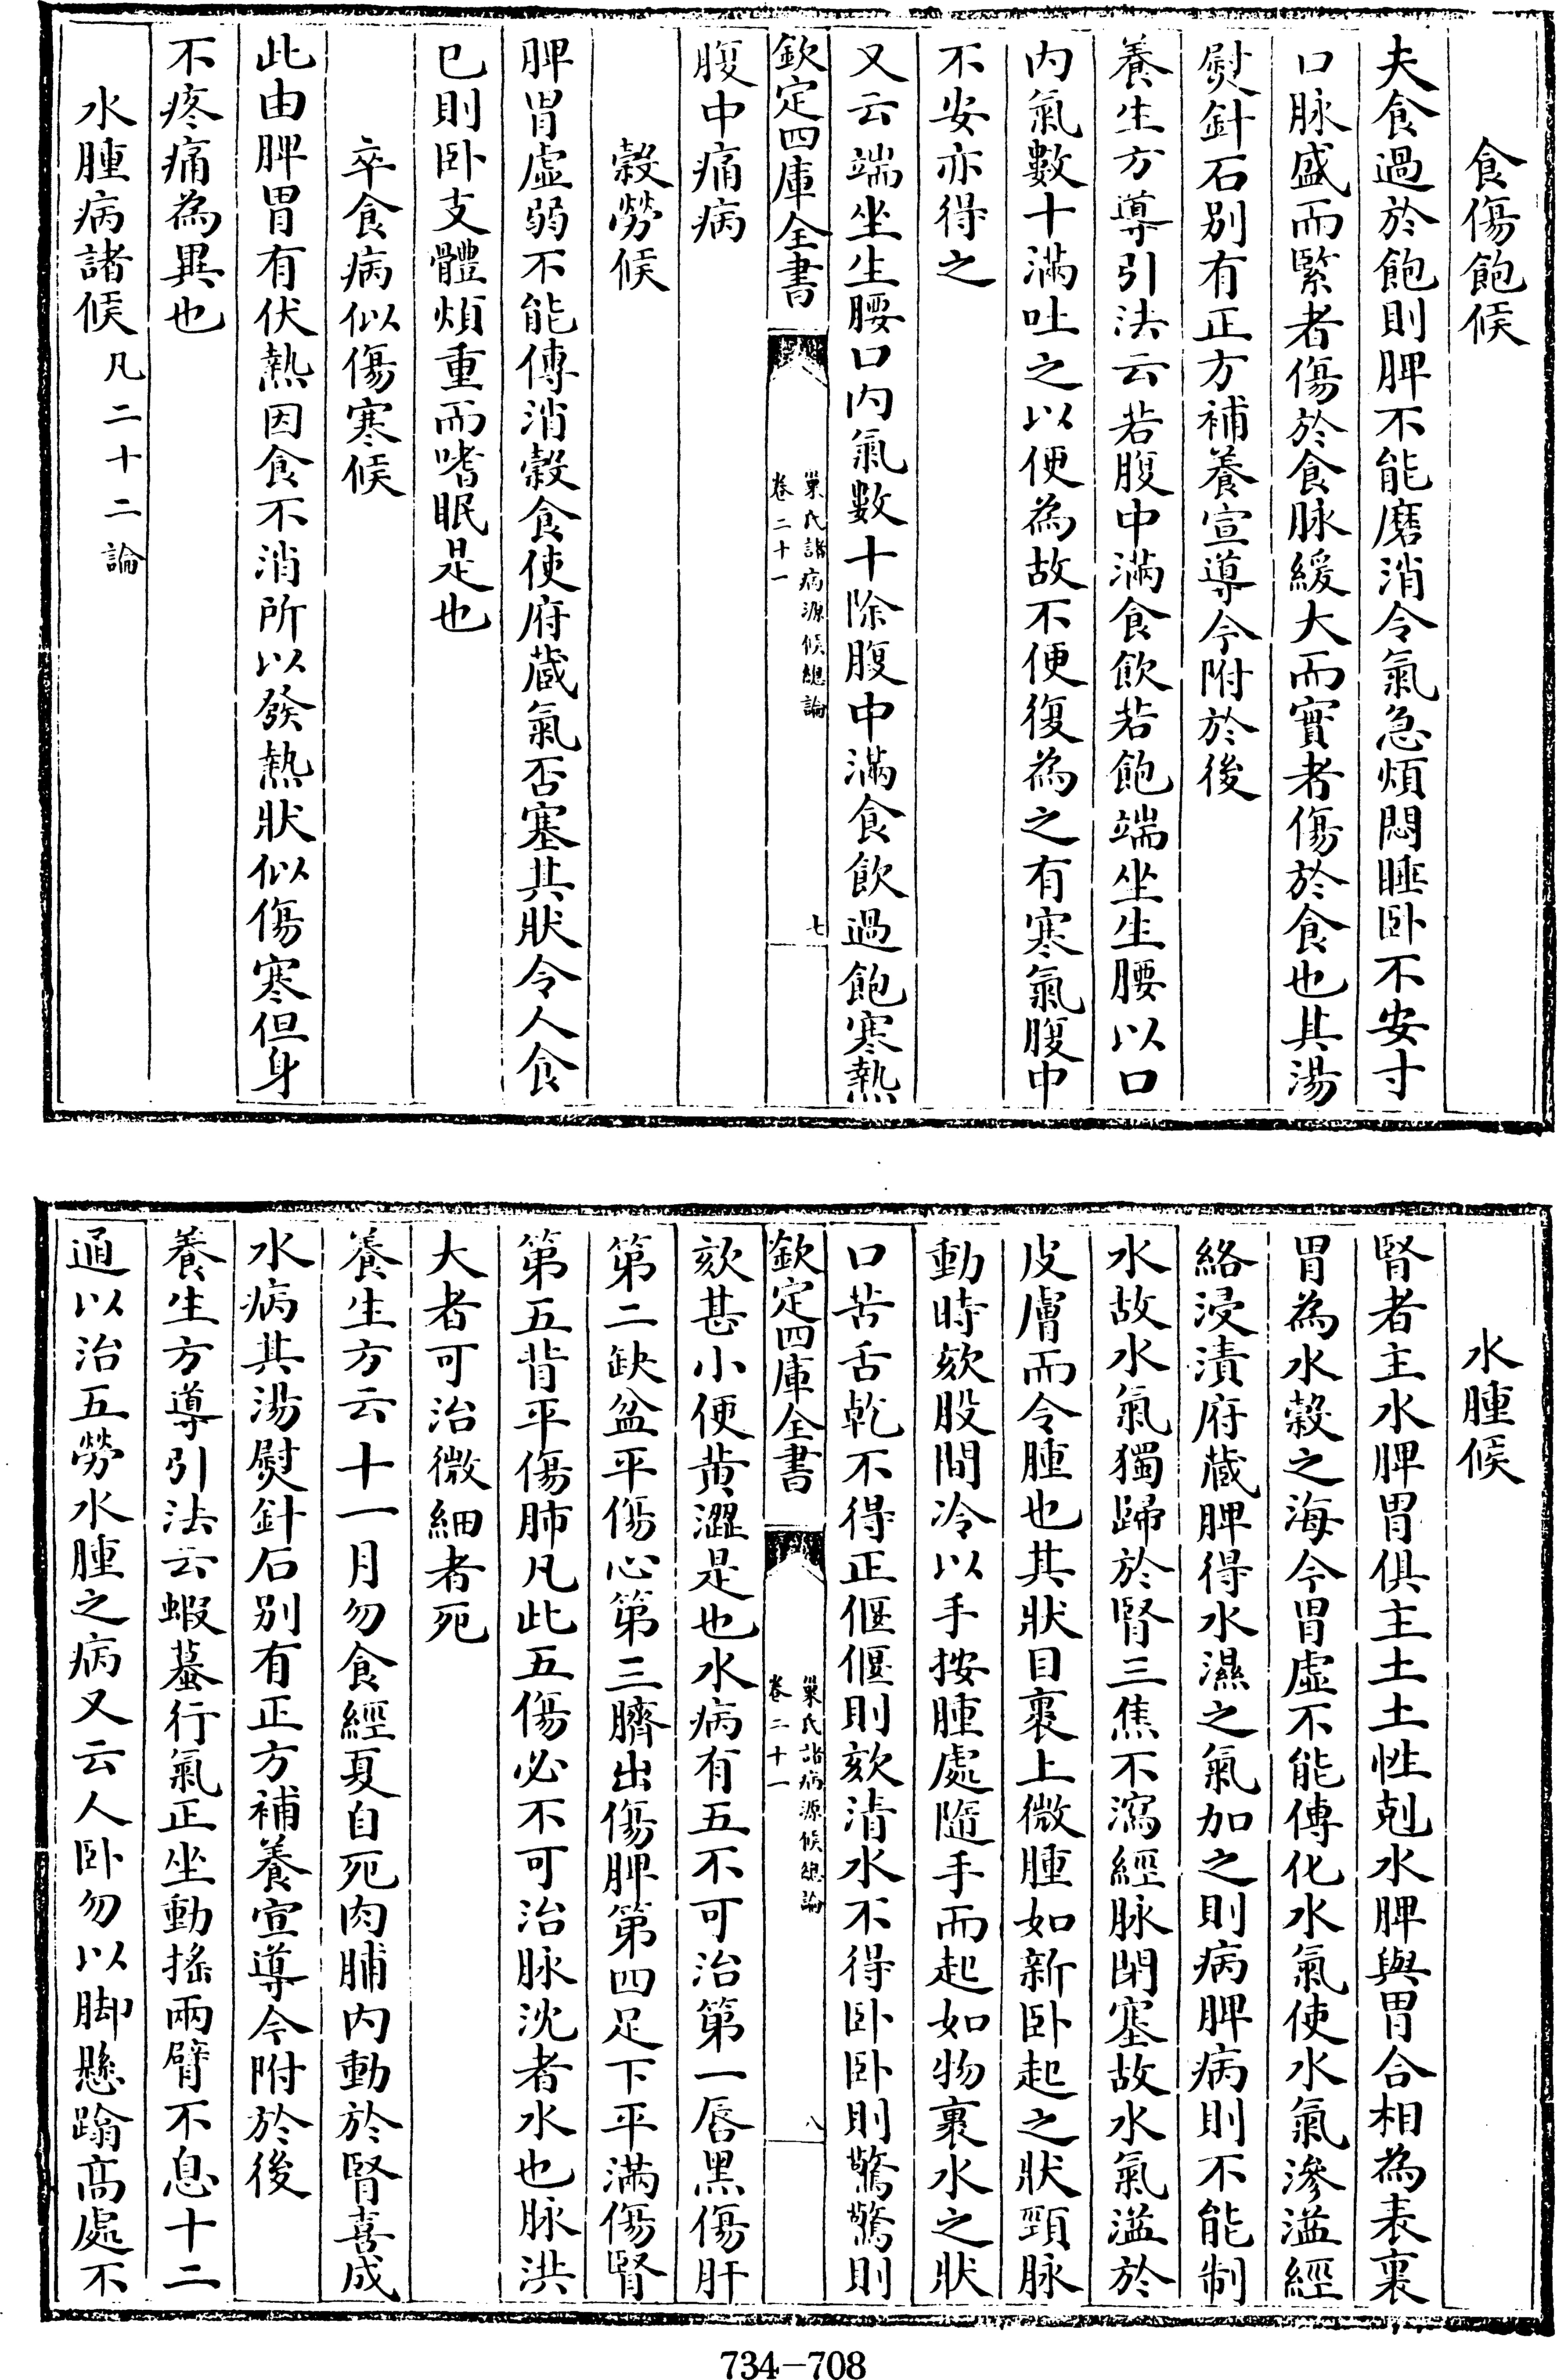 食傷飽候
夫食過於飽則脾不能磨消令氣急煩悶睡卧不安寸
口脉盛而緊者傷於食脉緩大而實者傷於食也其湯
熨針石别有正方補養宣導今附於後
養生方導引法云若腹中滿食飲若飽端坐生腰以口
内氣數十滿吐之以便為故不便復為之有寒氣腹中
不安亦得之
又云端坐生腰口内氣數十除腹中滿食飲過飽寒熱
欽定四庫全書
巢氏諸病源候總論
卷二十一
七
腹中痛病
穀勞候
脾胃虚弱不能傳消穀食使府蔵氣否塞其狀令人食
已則卧支體煩重而嗜眠是也
卒食病似傷寒候
此由脾胃有伏熱因食不消所以發熱狀似傷寒但身
不疼痛為異也
水腫病諸候凡二十二論
水腫候
腎者主水脾胃俱主土土性剋水脾與胃合相為表裏
胃為水穀之海今胃虚不能傳化水氣使水氣滲溢經
絡浸漬府蔵脾得水濕之氣加之則病脾病則不能制
水故水氣獨歸於腎三焦不瀉經脉閉塞故水氣溢於
皮膚而令腫也其狀目裹上微腫如新卧起之狀頸脉
動時欬股間冷以手按腫處隨手而起如物裹水之狀
口苦舌乾不得正偃偃則欬清水不得卧卧則驚驚則
欽定四庫全書
巢氏諸病源候總論
卷二十一
八
欬甚小便黄澀是也水病有五不可治第一唇黑傷肝
第二缺盆平傷心第三臍出傷脾第四足下平滿傷腎
第五背平傷肺凡此五傷必不可治脉沈者水也脉洪
大者可治微細者死
養生方云十一月勿食經夏自死肉脯内動於腎喜成
水病其湯熨針石别有正方補養宣導今附於後
養生方導引法云蝦蟇行氣正坐動摇兩臂不息十二
通以治五勞水腫之病又云人卧勿以脚懸踰高處不
734-708